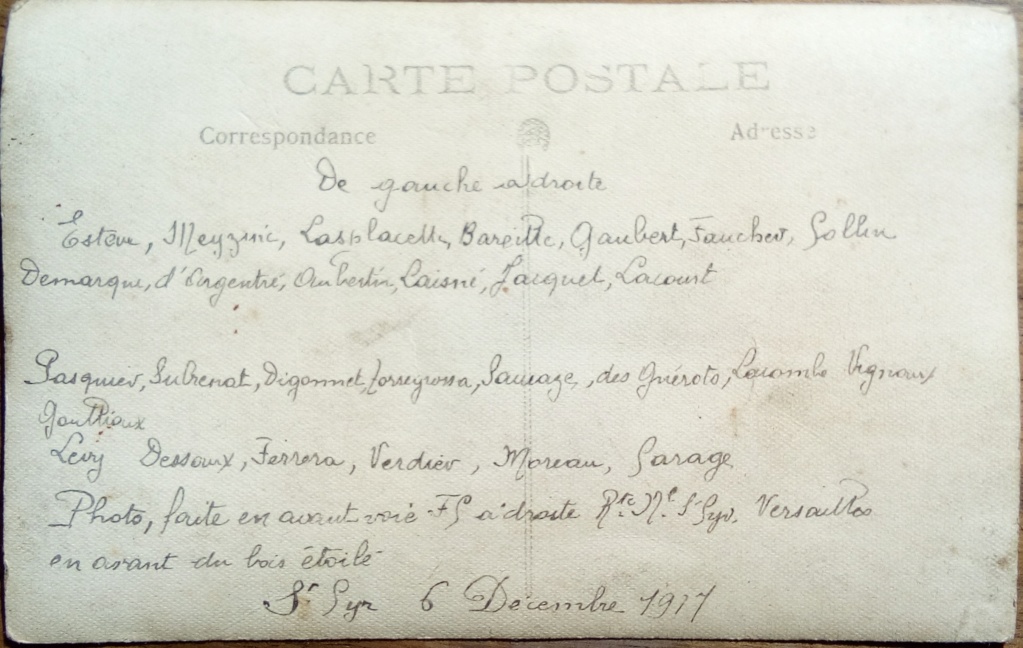 CARTE POSTALE
Correspondance Adresse
De gauche a droite
Estève, Meyzinc, Lasplacette, Bareille, Gaubert, Faucher, Gollin
Demarque, d'Argentré, Aubertin, Laisné, Jacquet, Lacourt
Pasquier, Subrenat, Digonnet, Sauvaze, des Guérots, Lacombe Vignaux
Gauthioux
Levy Dessoux, Ferrera, Verdier, Moreau, Garage
Photo, faite en avant voie à droite Rte Nle St Cyr. Versailles
en avant du bois étoilé
St Cyr 6 Décembre 1917